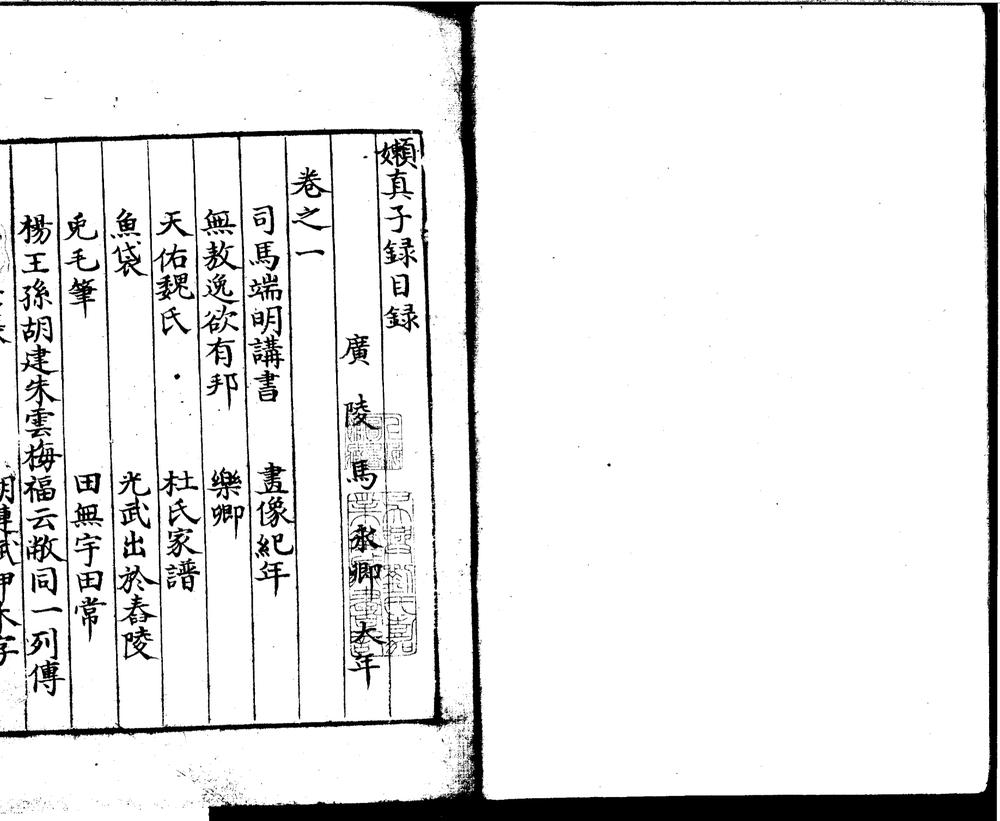 嬾真子録目録
廣陵馬永卿大年
卷之一
司馬端明講書　畫像紀年
無敖逸欲有邦　樂卿
天佑魏氏　杜氏家譜
魚袋　光武出於舂陵
兎毛筆　田無宇田常
楊王孫胡建朱雲梅福云敞同一列傳